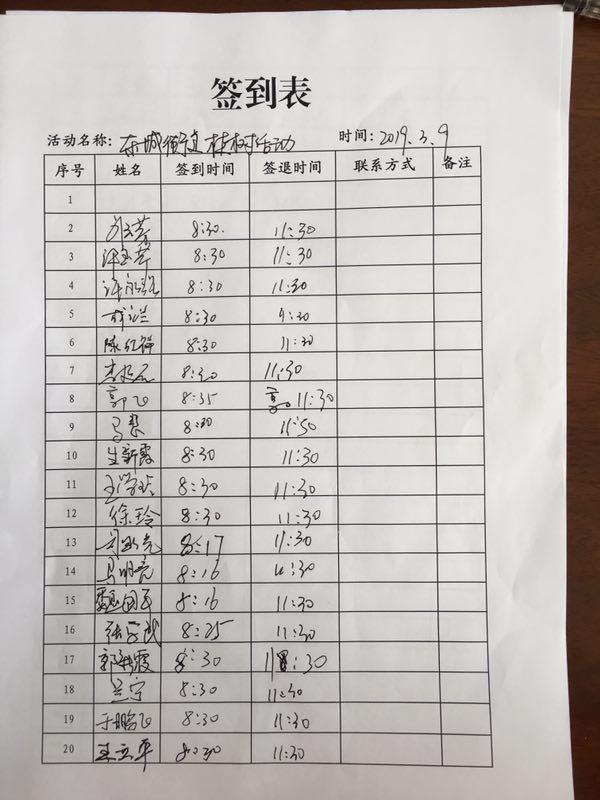 签到表
活动名称: 东城街道植树活动 时间: 2019.3.9
序号 姓名 签到时间 签退时间 联系方式 备注
1
2 8:30. 11:30
3 8:30 11:30
4 8:30 11:30
5 8:30 11:30
6 陈红祥 8:30 11:30
7 8:30 11:30
8 郭飞 8:35 11:30
9 8:30 11:50
10 生新霞 8:30 11:30
11 8:30 11:30
12 徐玲 8:30 11:30
13 8:17 11:30
14 马明亮 8:16 11:30
15 魏国军 8:16 11:30
16 8:25 11:30
17 8:30 11:30
18 兰宁 8:30 11:30
19 于鹏飞 8:30 11:30
20 王立平 8:30 11:30